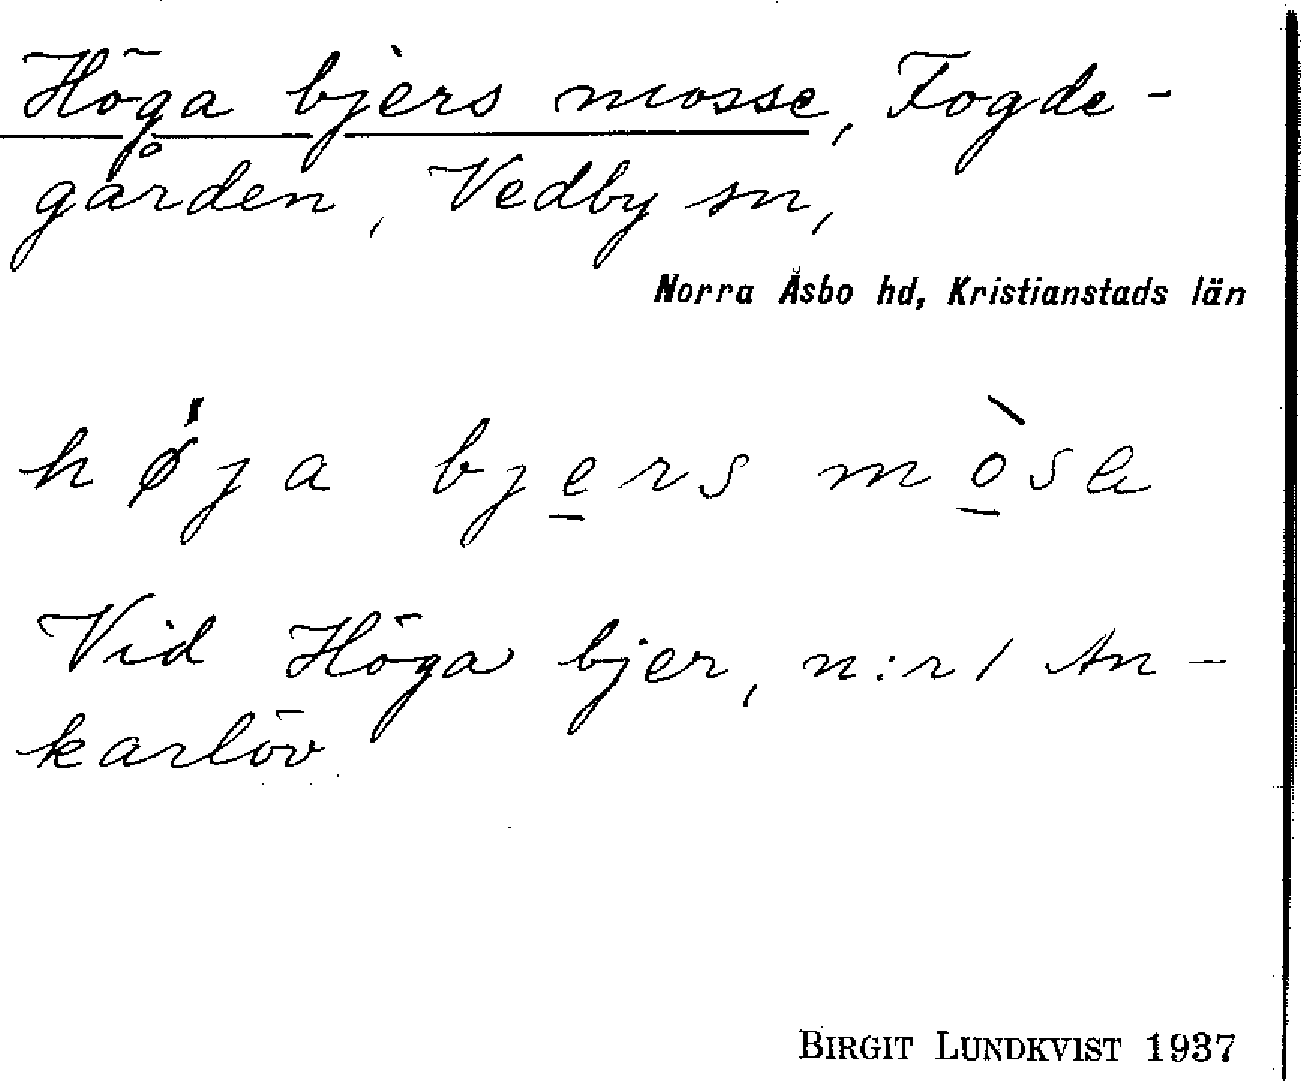 Höga bjers mosse, Fogde-
gården, Vedby sn,
Norra Åsbo hd, Kristianstads län
høja bjers mosa
Vid Höga bjer, n:r 1 An-
karlöv
BIRGIT LUNDKVIST 1937